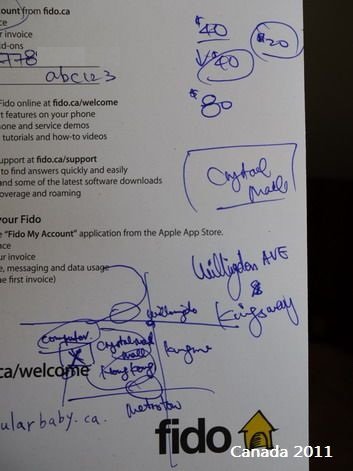 ount from fido.ca
ce
r invoice
dd-ons
778
abc123
Fido online at fido.ca/welcome
t features on your phone
hone and service demos
tutorials and how-to videos
upport at fido.ca/support
to find answers quickly and easily
and some of the latest software downloads
overage and roaming
your Fido
e "Fido My Account" application from the Apple App Store.
nce
ur invoice
e, messaging and data usage
he first invoice)
$40
$20
$40
$80
Crystal
Mall
Willingdon AVE
&
Kingsway
Willingdo
Computer
Crystal
mall
Hong Kong
X
Metrotow
ca/welcome
ularbaby.ca.
fido
Canada 2011